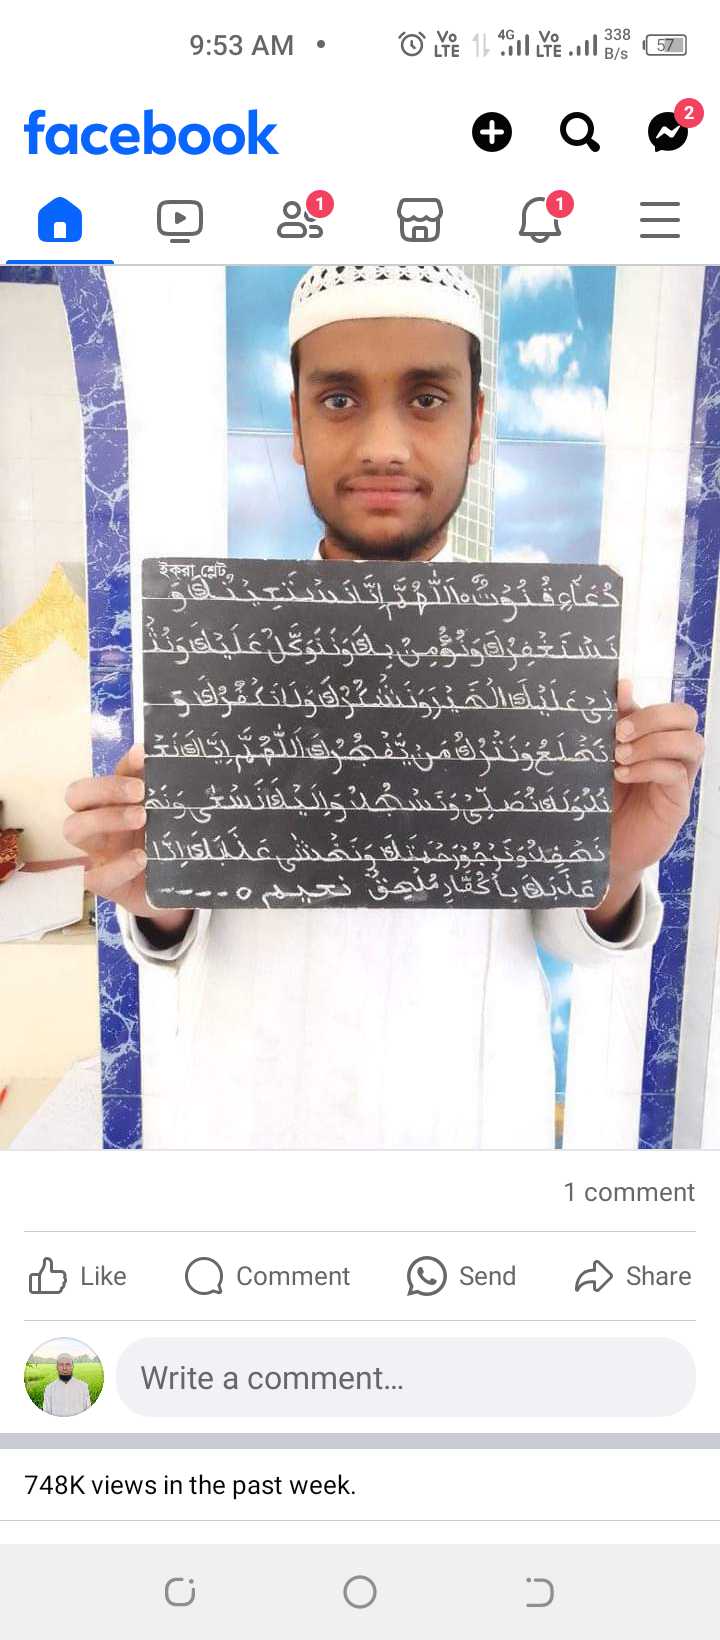 9:53 AM
Vo LTE 4G Vo LTE 338 B/s 57
facebook
2
1 1
ইকরা শ্লেট
دُعَاءِ قُنُوْتْ ٥ اَللّٰهُمَّ اِنَّا نَسْتَعِيْنُكَ وَ
نَسْتَغْفِرُكَ وَنُؤْمِنُ بِكَ وَنَتَوَكَّلُ عَلَيْكَ وَنُثْ
نِىْ عَلَيْكَ الْخَيْرَ وَنَشْكُرُكَ وَلَا نَكْفُرُكَ وَ
نَخْلَعُ وَنَتْرُكُ مَنْ يَّفْجُرُكَ اَللّٰهُمَّ اِيَّاكَ نَعْ
وَلَكَ نُصَلِّىْ وَنَسْجُدُ وَاِلَيْكَ نَسْعٰى وَنَحْ
وَنَرْجُوْ رَحْمَتَكَ وَنَخْشٰى
مُلْحِقٌ
1 comment
Like Comment Send Share
Write a comment...
748K views in the past week.